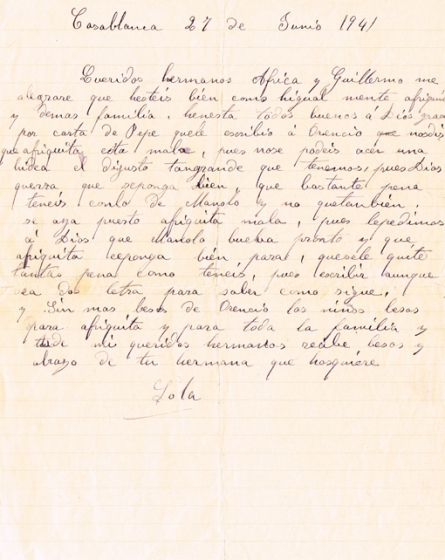 Casablanca 27 de Junio 1941
Queridos hermanos Africa y Guillermo me
alegrare que hesteis bien como higual mente afriquita
y demas familia. henesta todos buenos á Dios gracias
por carta de Pepe quele escribió á Orencio nosdis
que afriquita está mala, pues nose podeis acer una
hidea el dijusto tangrande que tenemos, pues Dios
quersa que seponga bien, que bastante pena
teneis conlo de Manolo y no quetanbien
se aya puesto afriquita mala, pues lepedimos
á Dios que Manolo buelva poronto y que
afriquita seponga bien, para, quesele quite
tantas pena como teneis, pues escribir aunque
sea dos letra para saber como sigue,
y Sin mas besos de Orencio los niños besos
para afriquita y para toda la familia y
mis queridos hermanos recibe besos y
abrazo de tu hermana que hosquiere
Lola